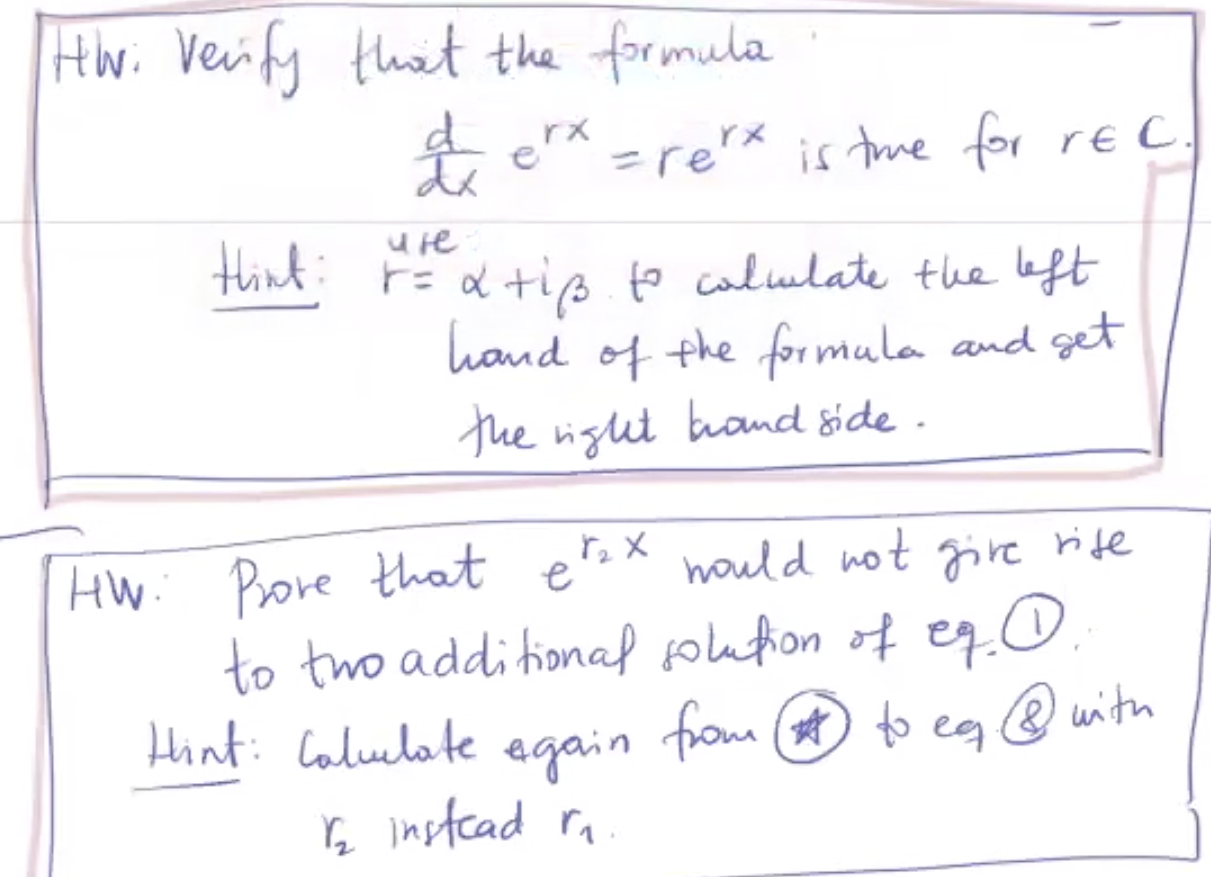 HW: Verify that the formula
d/dx e^{rx} = re^{rx} is true for r ∈ C.
use
Hint: r = α + iβ to calculate the left
hand of the formula and get
the right hand side.
HW: Prove that e^{r₂x} would not give rise
to two additional solution of eq. ①.
Hint: Calculate again from (★) to eq. ⑧ with
r₂ instead r₁.